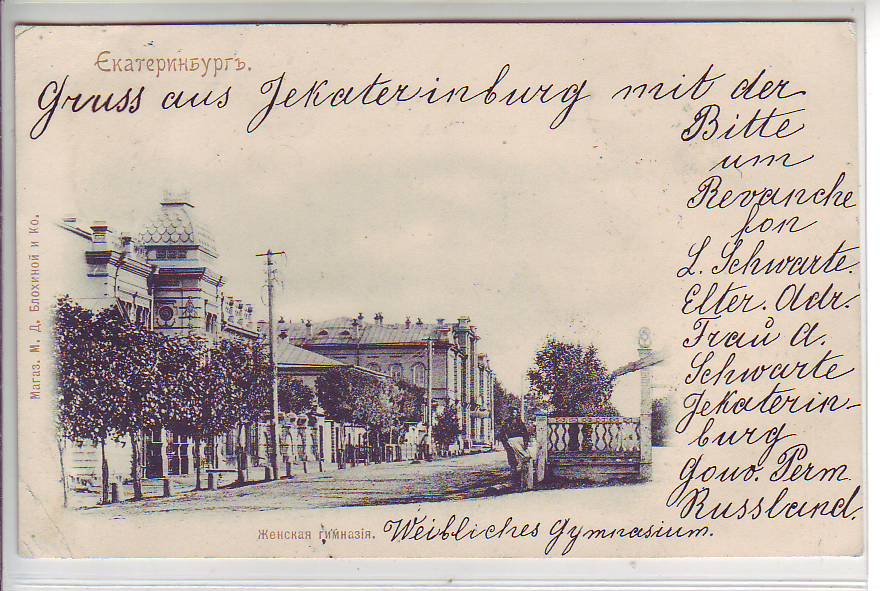 Екатеринбургъ.
Gruss aus Jekaterinburg mit der
Bitte
um
Revanche
von
L. Schwarte.
Elter. Adr.
Frau A.
Schwarte
Jekaterin-
burg
Gouv. Perm
Russland.
Магаз. М. Д. Блохиной и Ко.
Женская гимназія. Weibliches Gymnasium.